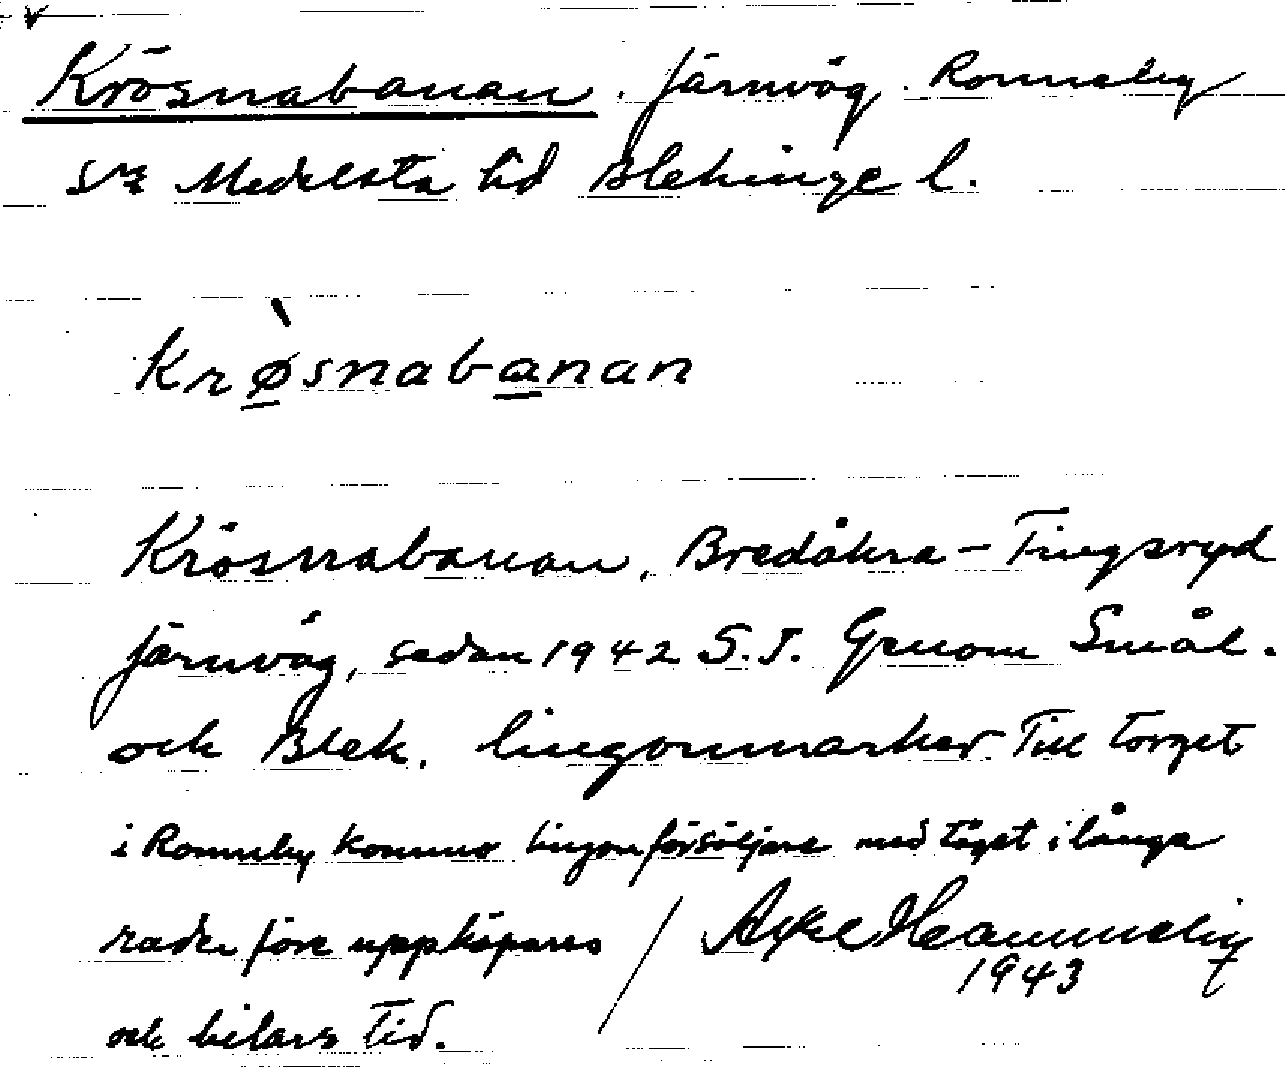 Krösnabanan. Järnväg. Ronneby
sn Medelsta hd Blekinge l.
Krø̀snabanan
Krösnabanan, Bredåkra – Tingsryd
järnväg, sedan 1942 S.J. Genom Smål.
och Blek. lingonmarker Till torget
i Ronneby kommo lingonförsäljare med tåget i långa
rader före uppköpares / Axel Hammelin
1943
och bilars tid.